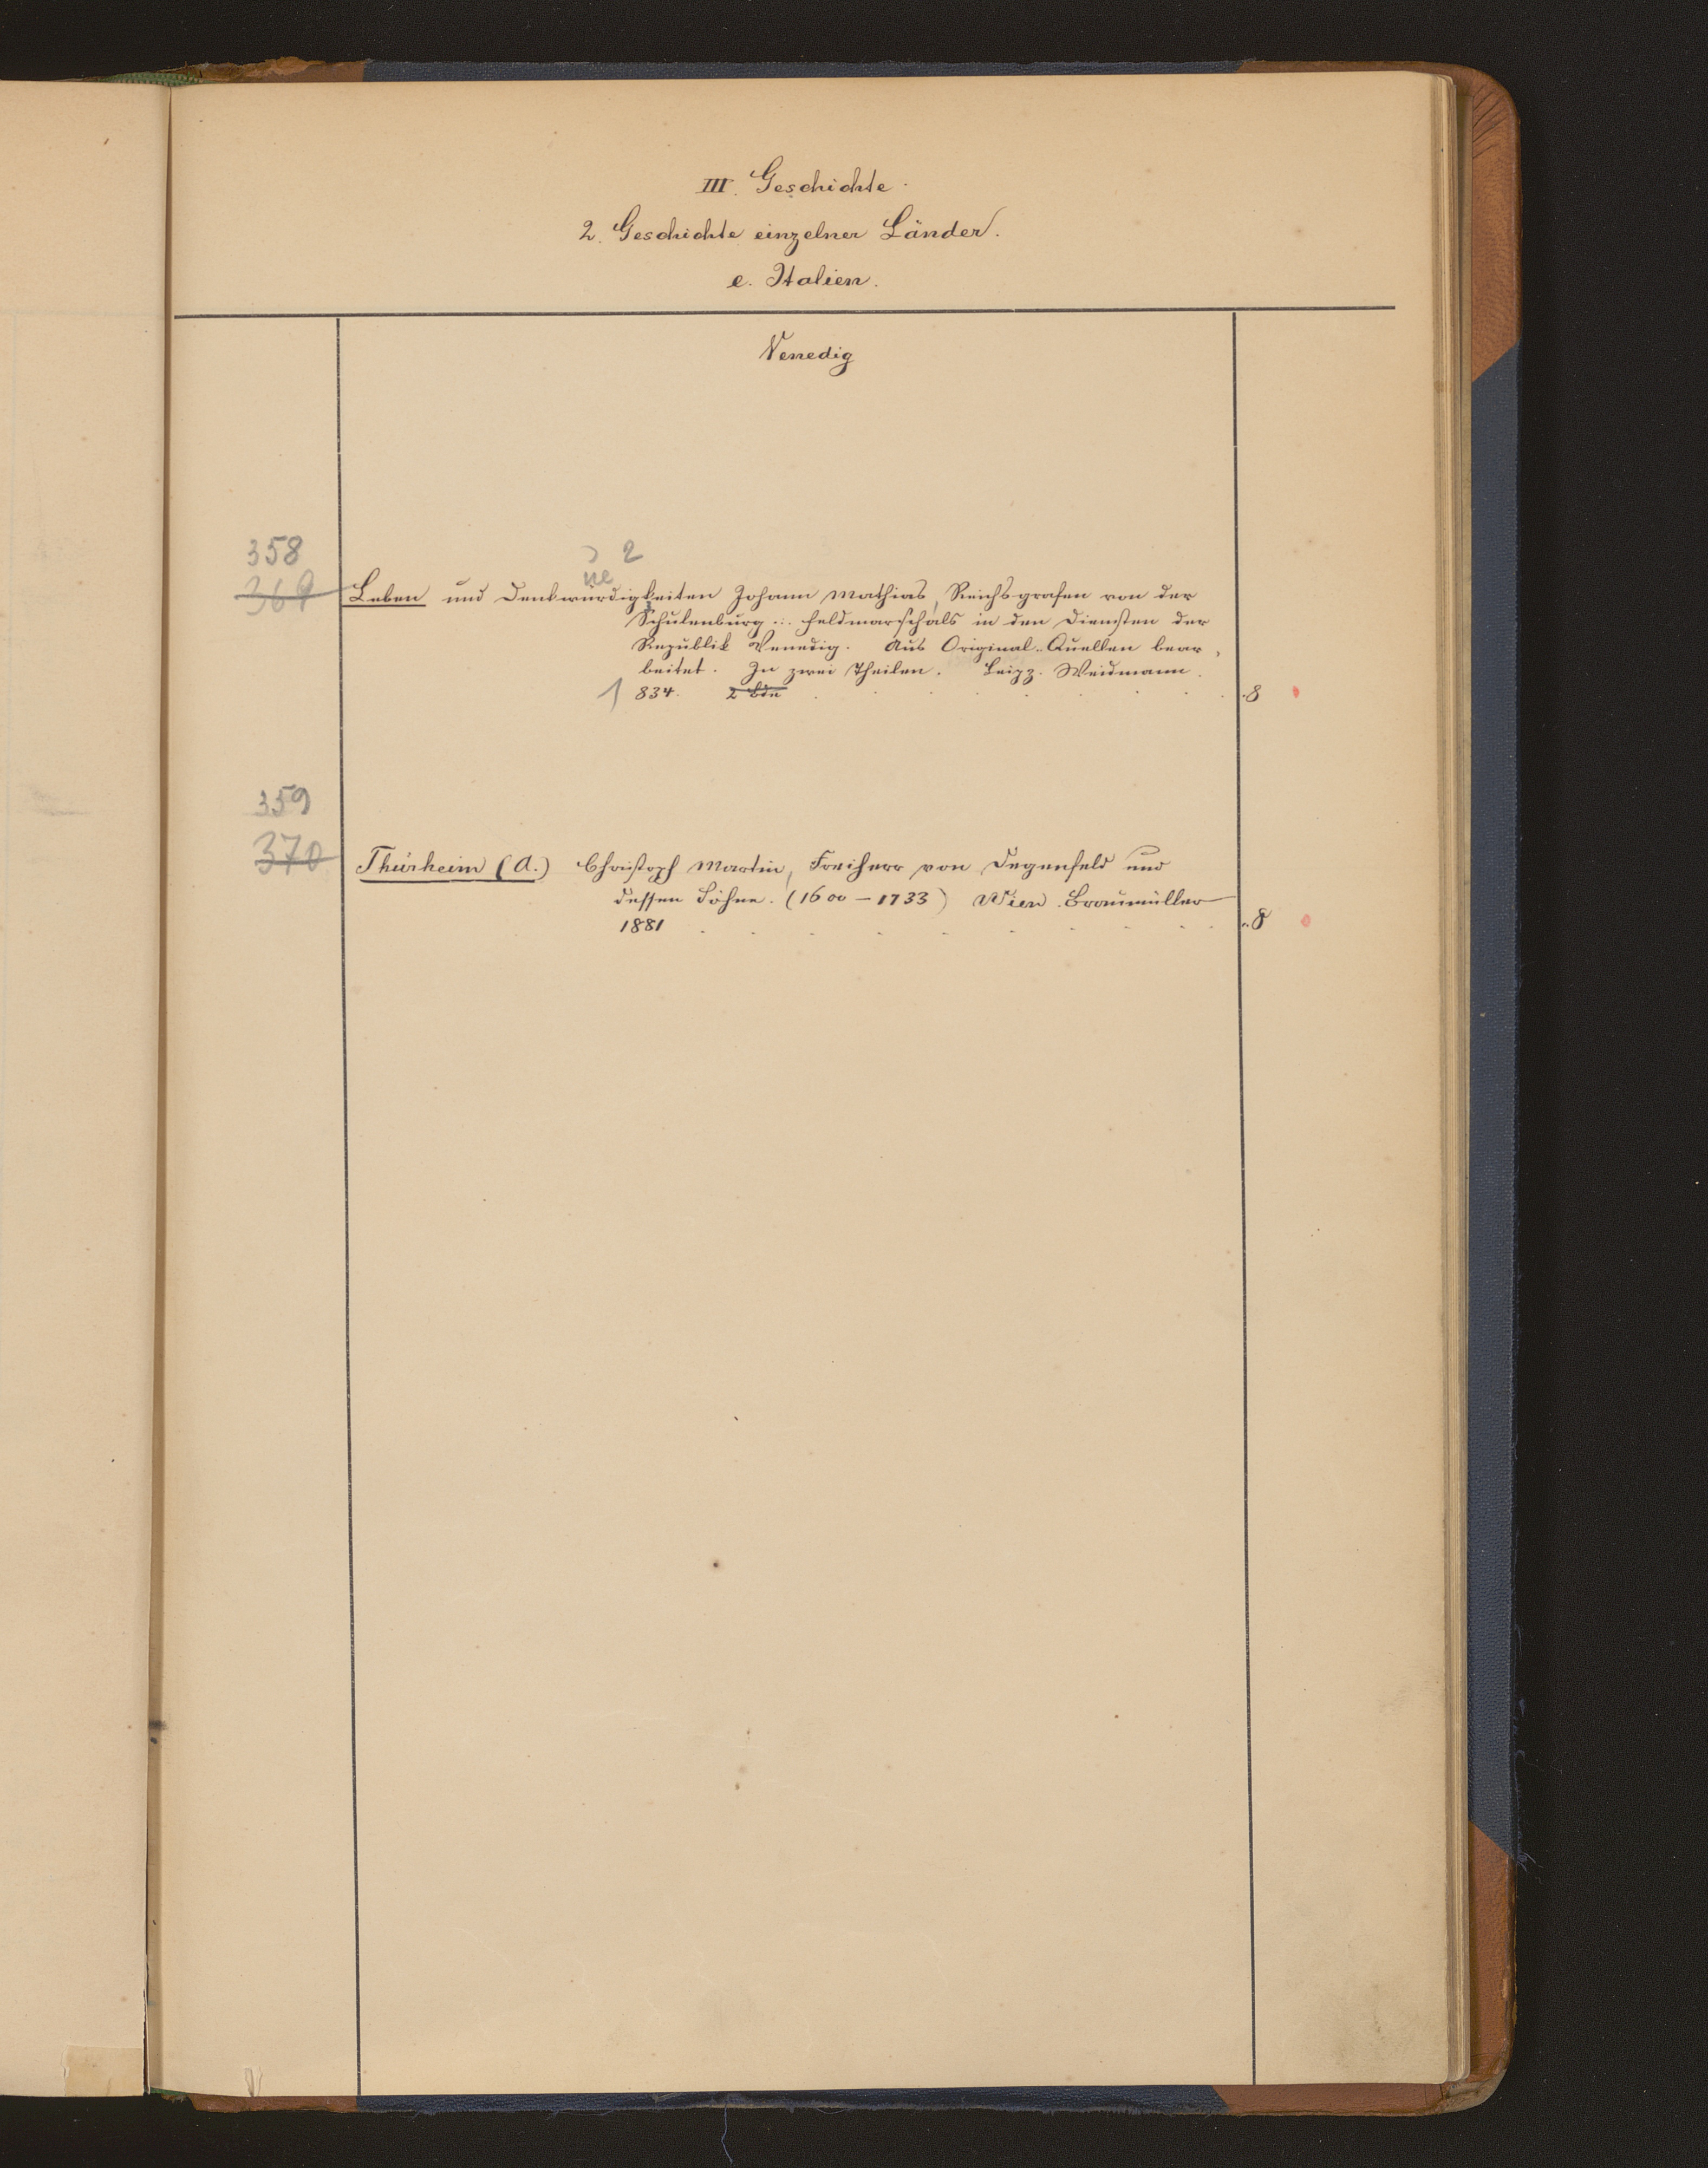 III. Geschichte.
2. Geschichte einzelner Länder.
e. Italien.
Venedig
358
2
369 Leben und Denkwürdigkeiten Johann Mathias, Reichsgrafen von der
Schulenburg ... Feldmarschals in den Diensten der
Republik Venedig. Aus Original-Quellen bear-
beitet. In zwei Theilen. Leipz. Weidmann.
1834. 2 Bde . . . . . . . . . 8
359
370 Thürheim (A.) Christoph Martin, Freiherr von Degenfeld und
dessen Söhne. (1600-1733) Wien. Braumüller
1881 . . . . . . . . . . 8